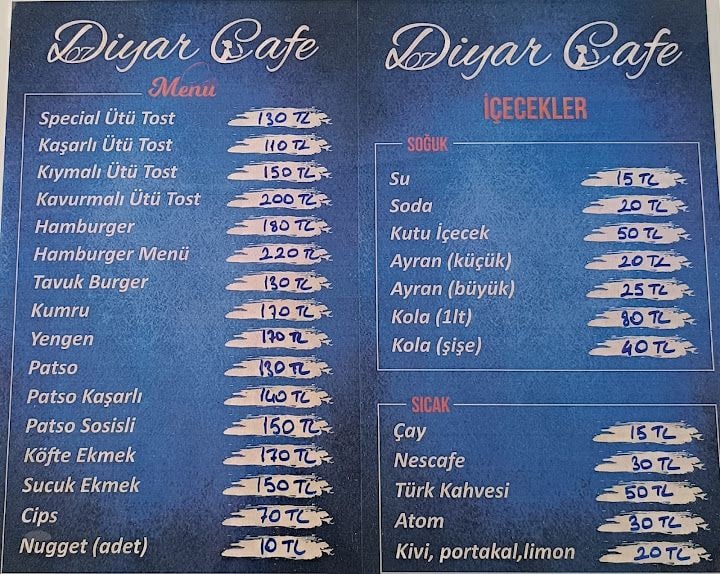 Diyar Cafe
Menü
Special Ütü Tost 130 TL
Kaşarlı Ütü Tost 110 TL
Kıymalı Ütü Tost 150 TL
Kavurmalı Ütü Tost 200 TL
Hamburger 180 TL
Hamburger Menü 220 TL
Tavuk Burger 130 TL
Kumru 170 TL
Yengen 170 TL
Patso 130 TL
Patso Kaşarlı 140 TL
Patso Sosisli 150 TL
Köfte Ekmek 170 TL
Sucuk Ekmek 150 TL
Cips 70 TL
Nugget (adet) 10 TL
Diyar Cafe
İÇECEKLER
SOĞUK
Su 15 TL
Soda 20 TL
Kutu İçecek 50 TL
Ayran (küçük) 20 TL
Ayran (büyük) 25 TL
Kola (1lt) 80 TL
Kola (şişe) 40 TL
SICAK
Çay 15 TL
Nescafe 30 TL
Türk Kahvesi 50 TL
Atom 30 TL
Kivi, portakal,limon 20 TL